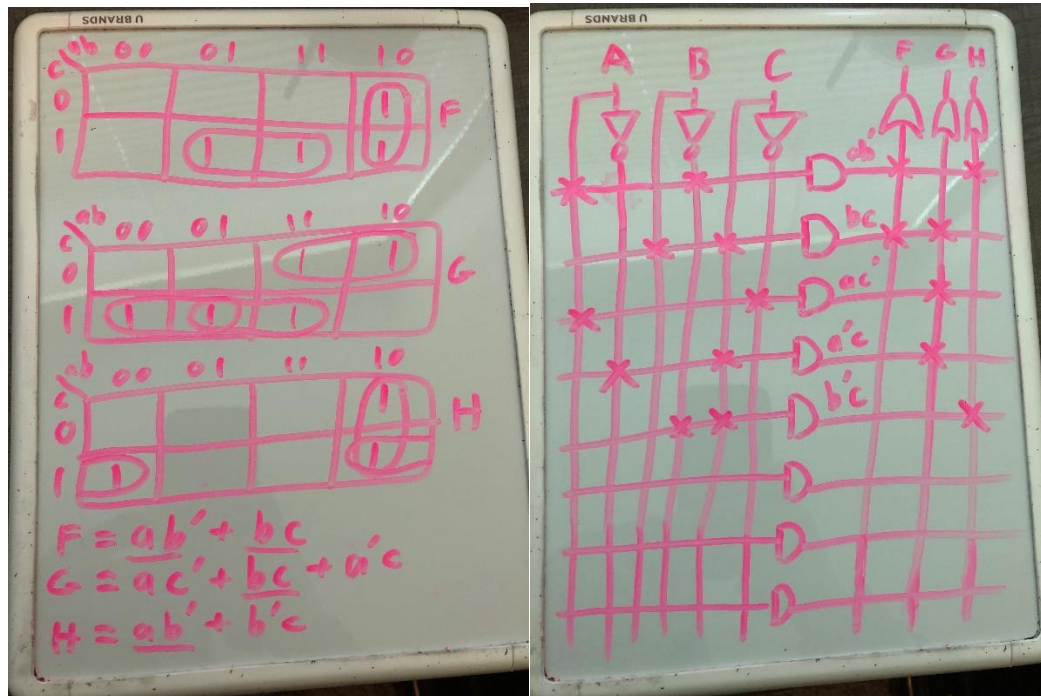 U BRANDS
ab 00 01 11 10
c
0 1
1 1 1 1
F
ab 00 01 11 10
c
0 1 1
1 1 1 1
G
ab 00 01 11 10
c
0 1
1 1 1
H
F = ab' + bc
G = ac' + bc + a'c
H = ab' + b'c
U BRANDS
A B C F G H
ab'
bc
ac'
a'c
b'c